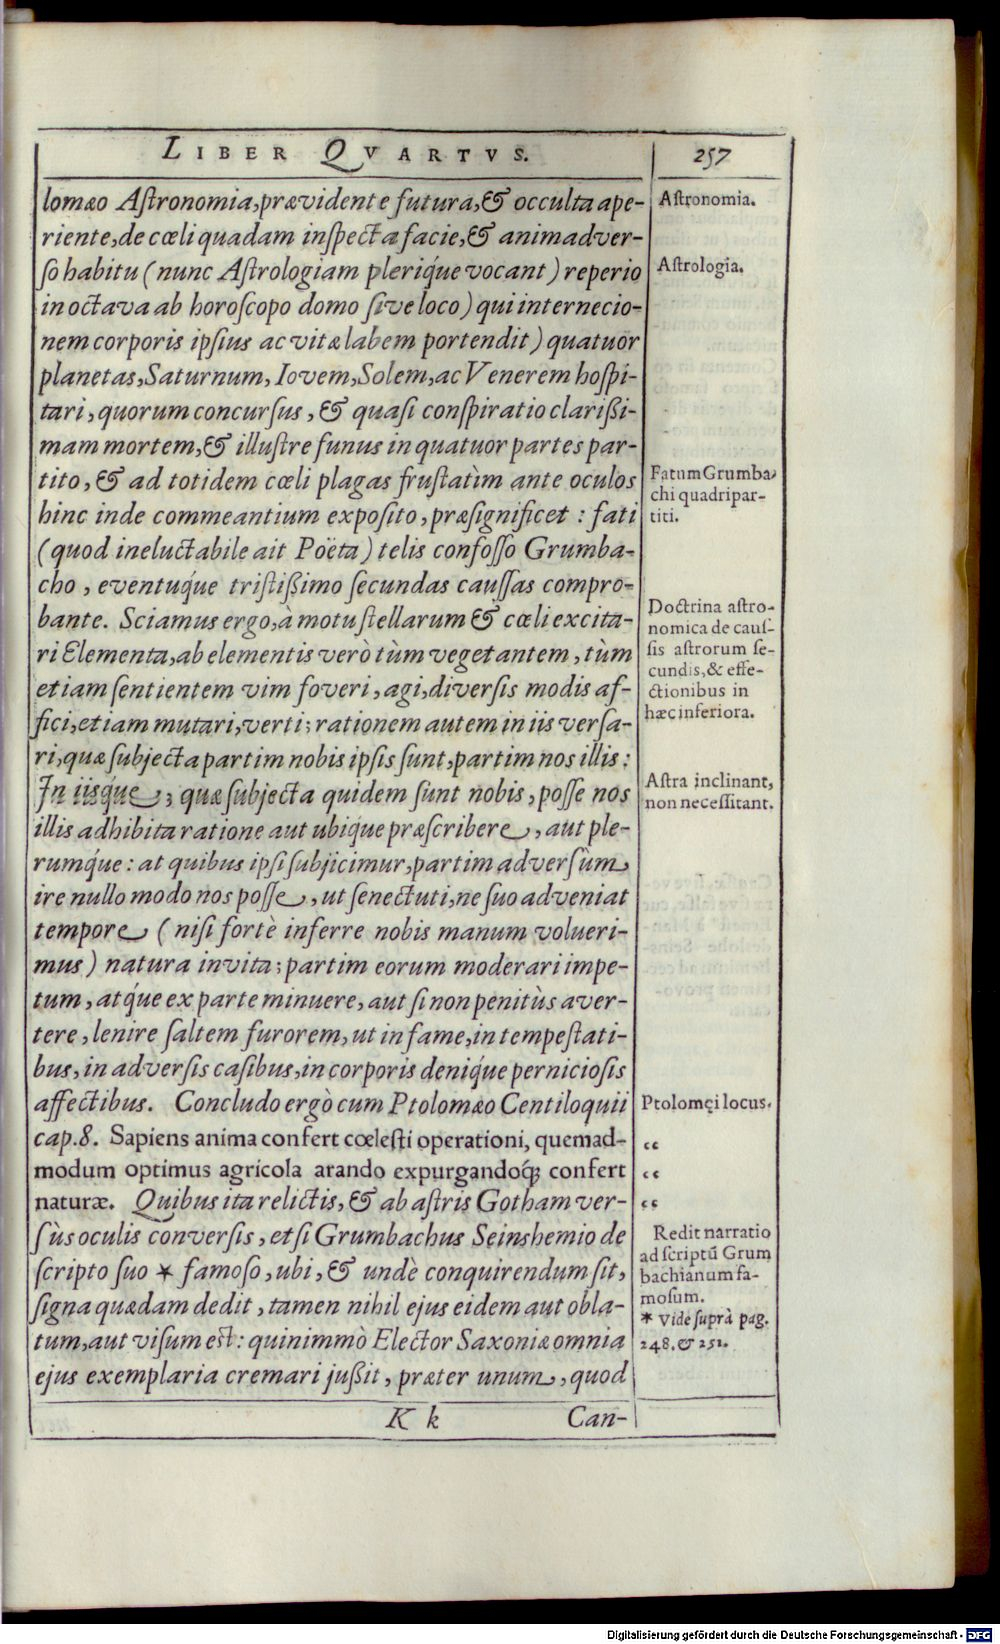 LIBER QVARTVS.
257
lomæo Astronomia, prævidente futura, & occulta ape-
riente, de cœli quadam inspecta facie, & animadver-
so habitu (nunc Astrologiam pleriq́ue vocant) reperio
in octava ab horoscopo domo sive loco) qui internecio-
nem corporis ipsius ac vitæ labem portendit) quatuor
planetas, Saturnum, Iovem, Solem, ac Venerem hospi-
tari, quorum concursus, & quasi conspiratio clarißi-
mam mortem, & illustre funus in quatuor partes par-
tito, & ad totidem cœli plagas frustatìm ante oculos
hinc inde commeantium exposito, præsignificet : fati
(quod ineluctabile ait Poëta) telis confosso Grumba-
cho, eventuq́ue tristißimo secundas caussas compro-
bante. Sciamus ergo, à motu stellarum & cœli excita-
ri Elementa, ab elementis verò tùm vegetantem, tùm
etiam sentientem vim foveri, agi, diversis modis af-
fici, etiam mutari, verti; rationem autem in iis versa-
ri, quæ subjecta partim nobis ipsis sunt, partim nos illis :
In iisq́ue; quæ subjecta quidem sunt nobis, posse nos
illis adhibita ratione aut ubique præscribere, aut ple-
rumq́ue : at quibus ipsi subjicimur, partim adversùm
ire nullo modo nos posse, ut senectuti, ne suo adveniat
tempore (nisi fortè inferre nobis manum volueri-
mus) natura invita; partim eorum moderari impe-
tum, atq́ue ex parte minuere, aut si non penitùs aver-
tere, lenire saltem furorem, ut in fame, in tempestati-
bus, in adversis casibus, in corporis deniq́ue perniciosis
affectibus. Concludo ergò cum Ptolomæo Centiloquii
cap. 8. Sapiens anima confert cœlesti operationi, quemad-
modum optimus agricola arando expurgandoq́; confert
naturæ. Quibus ita relictis, & ab astris Gotham ver-
sùs oculis conversis, etsi Grumbachus Seinshemio de
scripto suo * famoso, ubi, & undè conquirendum sit,
signa quædam dedit, tamen nihil ejus eidem aut obla-
tum, aut visum est : quinimmò Elector Saxoniæ omnia
ejus exemplaria cremari jußit, præter unum, quod
K k
Can-
Astronomia.
Astrologia.
Fatum Grumba-
chi quadripar-
titi.
Doctrina astro-
nomica de caus-
sis astrorum se-
cundis, & effe-
ctionibus in
hæc inferiora.
Astra inclinant,
non necessitant.
Ptolomęi locus.
“
“
“
Redit narratio
ad scriptū Grum
bachianum fa-
mosum.
* Vide suprà pag.
248. & 251.
Digitalisierung gefördert durch die Deutsche Forschungsgemeinschaft - DFG